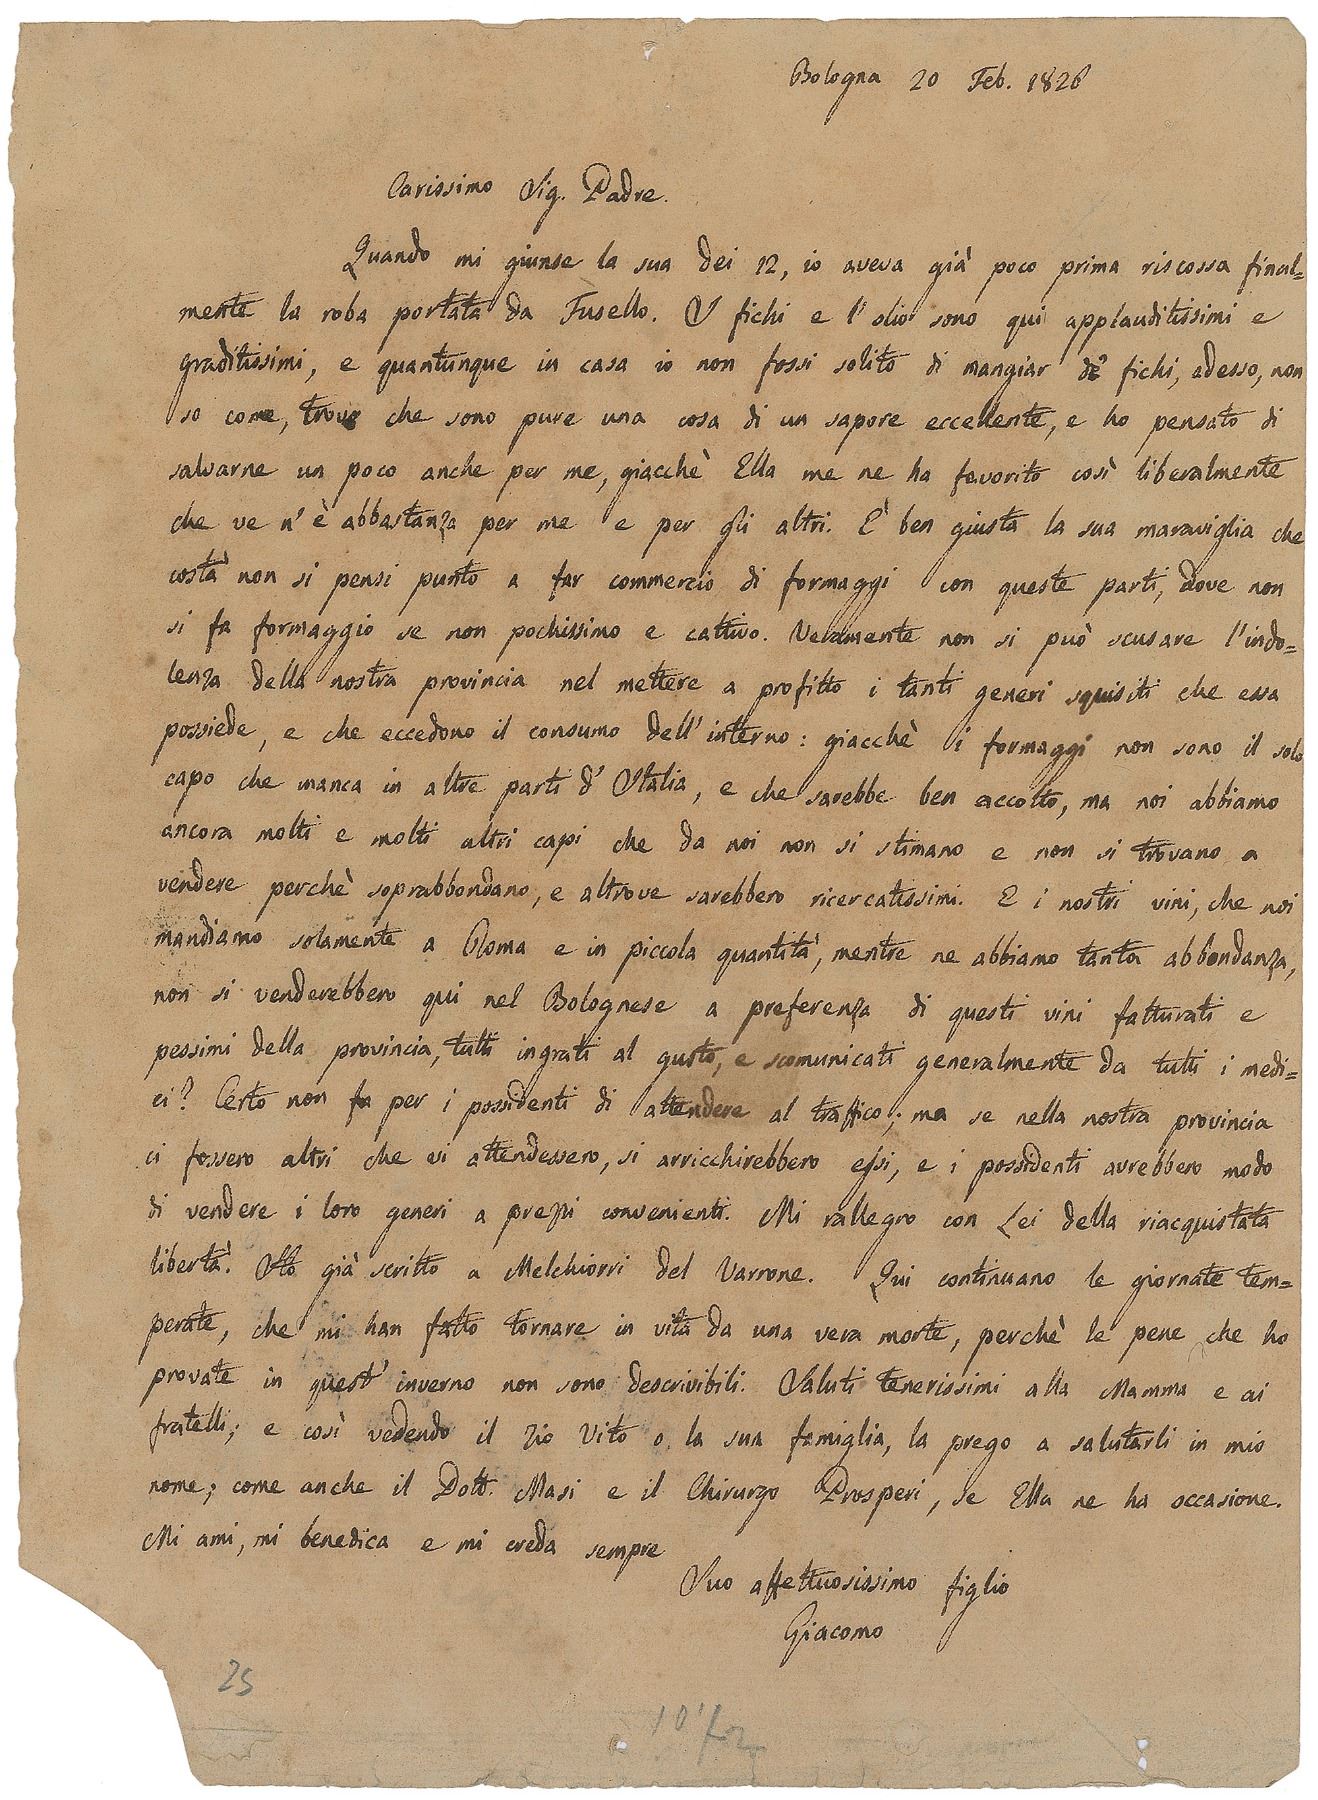 Bologna 20 Feb. 1826
Carissimo Sig. Padre.
Quando mi giunse la sua dei 12, io aveva già poco prima riscossa final=
mente la roba portata da Fusello. I fichi e l'olio sono qui applauditissimi e
graditissimi, e quantunque in casa io non fossi solito di mangiar de' fichi, adesso, non
so come, trovo che sono pure una cosa di un sapore eccellente, e ho pensato di
salvarne un poco anche per me, giacchè Ella me ne ha favorito così liberalmente
che ve n'è abbastanza per me e per gli altri. È ben giusta la sua maraviglia che
costà non si pensi punto a far commercio di formaggi con queste parti, dove non
si fa formaggio se non pochissimo e cattivo. Veramente non si può scusare l'indo=
lenza della nostra provincia nel mettere a profitto i tanti generi squisiti che essa
possiede, e che eccedono il consumo dell'interno: giacchè i formaggi non sono il solo
capo che manca in altre parti d'Italia, e che sarebbe ben accolto, ma noi abbiamo
ancora molti e molti altri capi che da noi non si stimano e non si trovano a
vendere perchè soprabbondano, e altrove sarebbero ricercatissimi. E i nostri vini, che noi
mandiamo solamente a Roma e in piccola quantità, mentre ne abbiamo tanta abbondanza,
non si venderebbero qui nel Bolognese a preferenza di questi vini fatturati e
pessimi della provincia, tutti ingrati al gusto, e scomunicati generalmente da tutti i medi=
ci? Certo non fa per i possidenti di attendere al traffico; ma se nella nostra provincia
ci fossero altri che vi attendessero, si arricchirebbero essi, e i possidenti avrebbero modo
di vendere i loro generi a prezzi convenienti. Mi rallegro con Lei della riacquistata
libertà. Ho già scritto a Melchiorri del Varrone. Qui continuano le giornate tem=
perate, che mi han fatto tornare in vita da una vera morte, perchè le pene che ho
provate in quest'inverno non sono descrivibili. Saluti tenerissimi alla Mamma e ai
fratelli; e così vedendo il zio Vito o la sua famiglia, la prego a salutarli in mio
nome; come anche il Dott. Masi e il Chirurgo Prosperi, se Ella ne ha occasione.
Mi ami, mi benedica e mi creda sempre
Suo affettuosissimo figlio
Giacomo
25